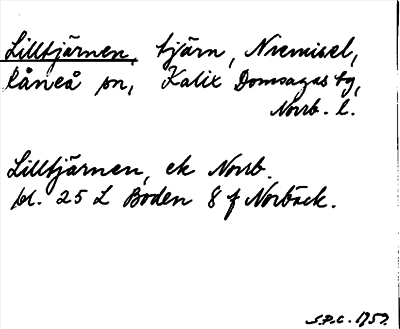 Lilltjärnen, tjärn, Niemisel,
Råneå sn, Kalix Domsagas tg,
Norrb. l.
Lilltjärnen, ek Norrb.
bl. 25 L Boden 8 f Norbäck.
S.P.C. 1757.